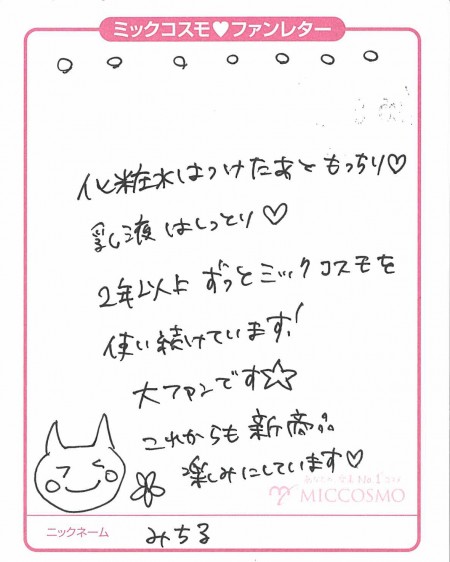 ミックコスモ♥ファンレター
化粧水はつけたあともっちり♡
乳液はしっとり♡
2年以上ずっとミックコスモを
使い続けています!
大ファンです☆
これからも新商品
楽しみにしています♡
MICCOSMO
ニックネーム みちる